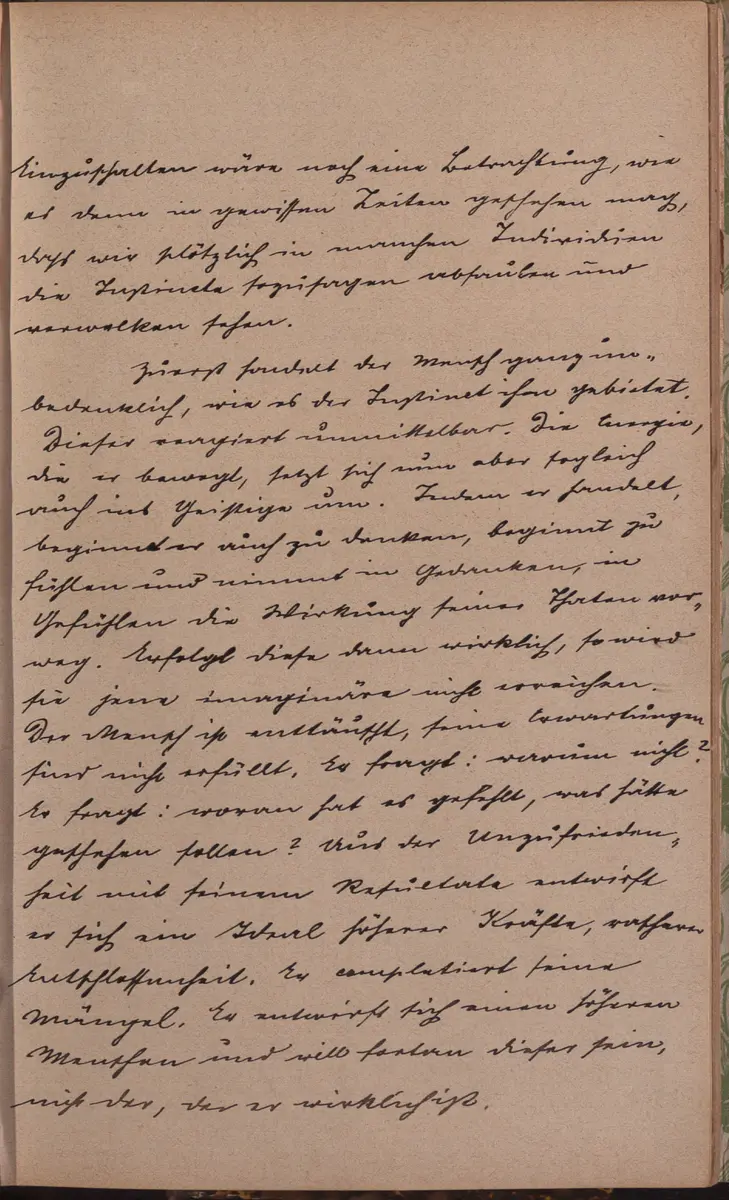 Einzuschalten wäre noch eine Betrachtung, wie
es denn in gewissen Zeiten geschehen mag,
dass wir plötzlich in manchen Individuen
die Instincte sozusagen absauben und
verwelken sehen.
Zuerst handelt der Mensch ganz un-
bedenklich, wie es der Instinct ihm gebietet.
Dieser reagiert unmittelbar. Die Energie,
die er bewegt, setzt sich nun aber sogleich
auch ins Geistige um. Indem er handelt,
beginnt er auch zu denken, beginnt zu
fühlen und nimmt in Gedanken, in
Gefühlen die Wirkung seiner Thaten vor-
weg. Erfolgt diese dann wirklich, so wird
sie jene imaginäre nicht erreichen.
Der Mensch ist enttäuscht, seine Erwartungen
sind nicht erfüllt. Er fragt: warum nicht?
Er fragt: woran hat es gefehlt, was hätte
geschehen sollen? Aus der Unzufrieden-
heit mit seinem Resultate entwirft
er sich ein Ideal höherer Kräfte, rascherer
Entschlossenheit. Er completiert seine
Mängel. Er entwirft sich einen höheren
Menschen und will fortan dieser sein,
nicht der, der er wirklich ist.